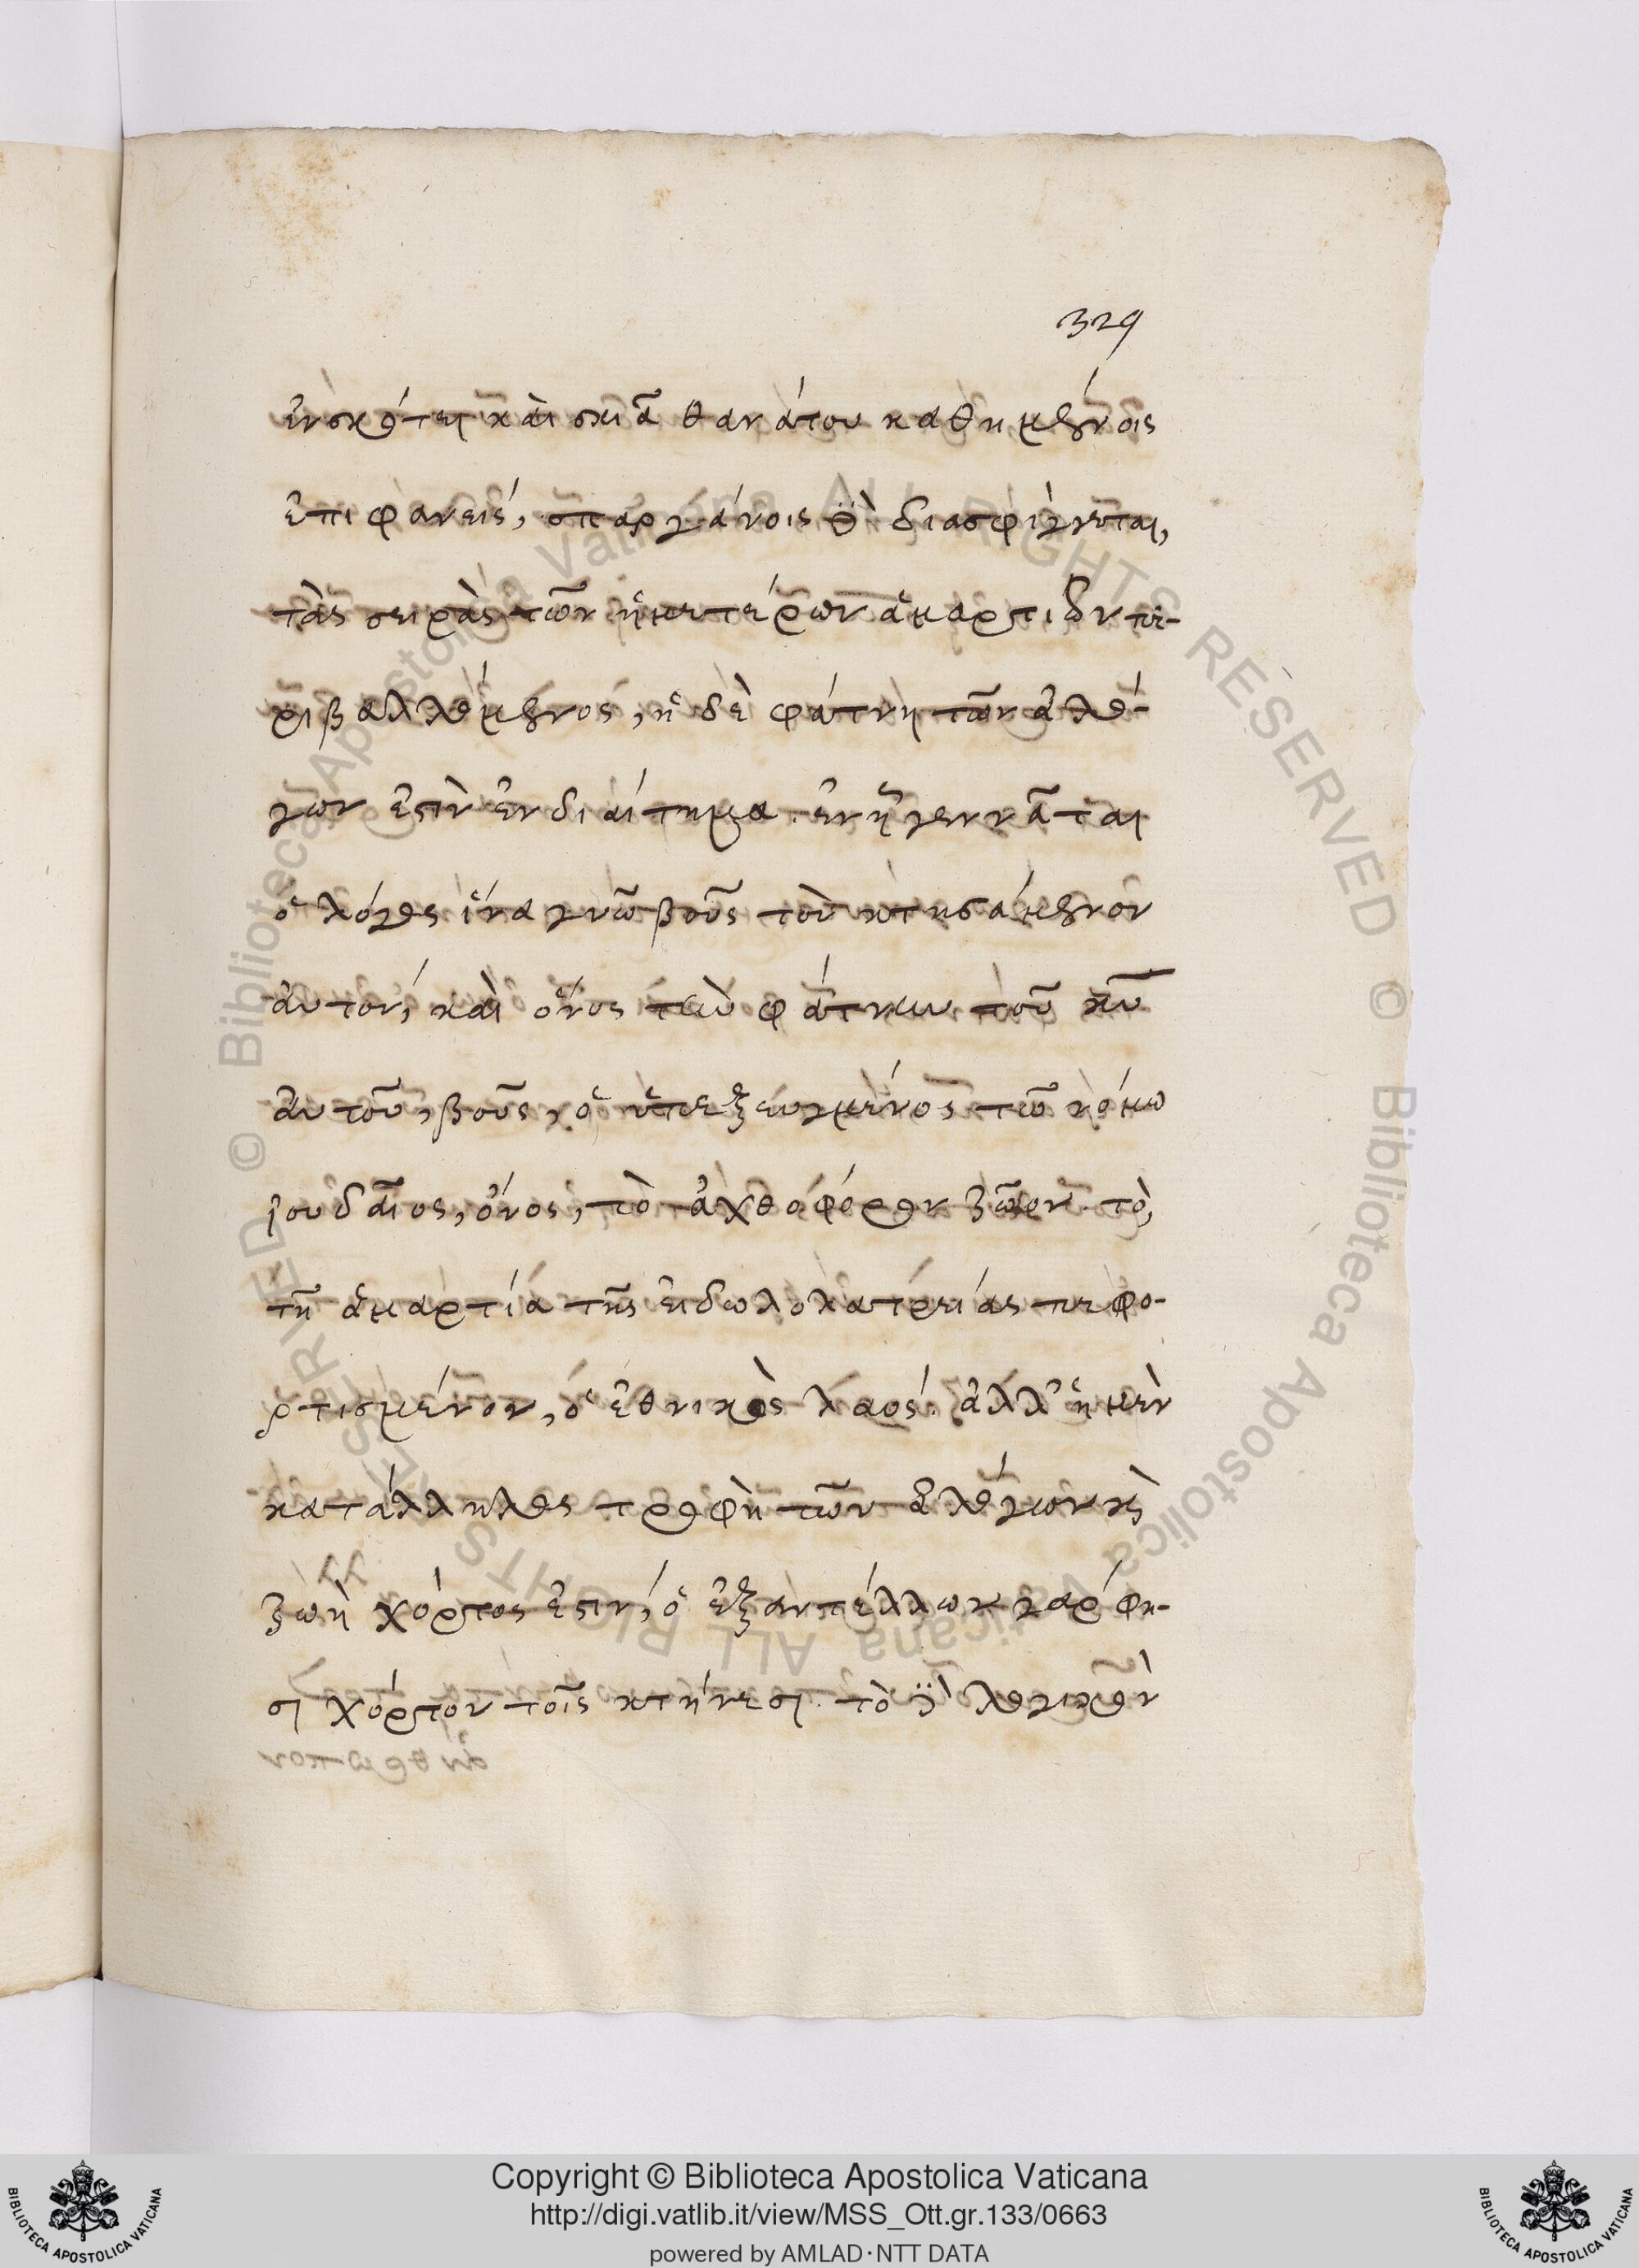 329
ἐν σκότει καὶ σκιᾶ θανάτου καθημένοις
ἐπιφανείς, σπαργάνοις δὲ διασφίγγεται,
τὰς σειρὰς τῶν ἡμετέρων ἁμαρτιῶν πε-
ριβαλλόμενος, ἡ δὲ φάτνη τῶν ἀλό-
γων ἐστὶν ἐνδιαίτημα. ἐν ἧ γεννᾶται
ὁ λόγος ἵνα γνῶ βοῦς τὸν κτησάμενον
αὐτόν, καὶ ὄνος τὴν φάτνην τοῦ κυ
αὐτοῦ, βοῦς, ὁ ὑπεζευγμένος τῶ νόμω
ἰουδαῖος, ὄνος, τὸ ἀχθοφόρον ζῶον τὸ,
τῆ ἁμαρτία τῆς εἰδωλολατρείας πεφο-
ρτισμένον, ὁ ἐθνικὸς λαός. ἀλλ' ἡ μὲν
κατάλληλος τροφὴ τῶν ἀλόγων κὶ
ζωὴ χόρτος ἐστίν, ὁ ἐξανατέλλων γαρ φη-
σι χόρτον τοῖς κτήνεσι. τὸ δὲ λογικὸν
Copyright © Biblioteca Apostolica Vaticana
http://digi.vatlib.it/view/MSS_Ott.gr.133/0663
powered by AMLAD · NTT DATA
BIBLIOTECA APOSTOLICA VATICANA
BIBLIOTECA APOSTOLICA VATICANA
© Biblioteca Apostolica Vaticana ALL RIGHTS RESERVED
© Biblioteca Apostolica Vaticana ALL RIGHTS RESERVED